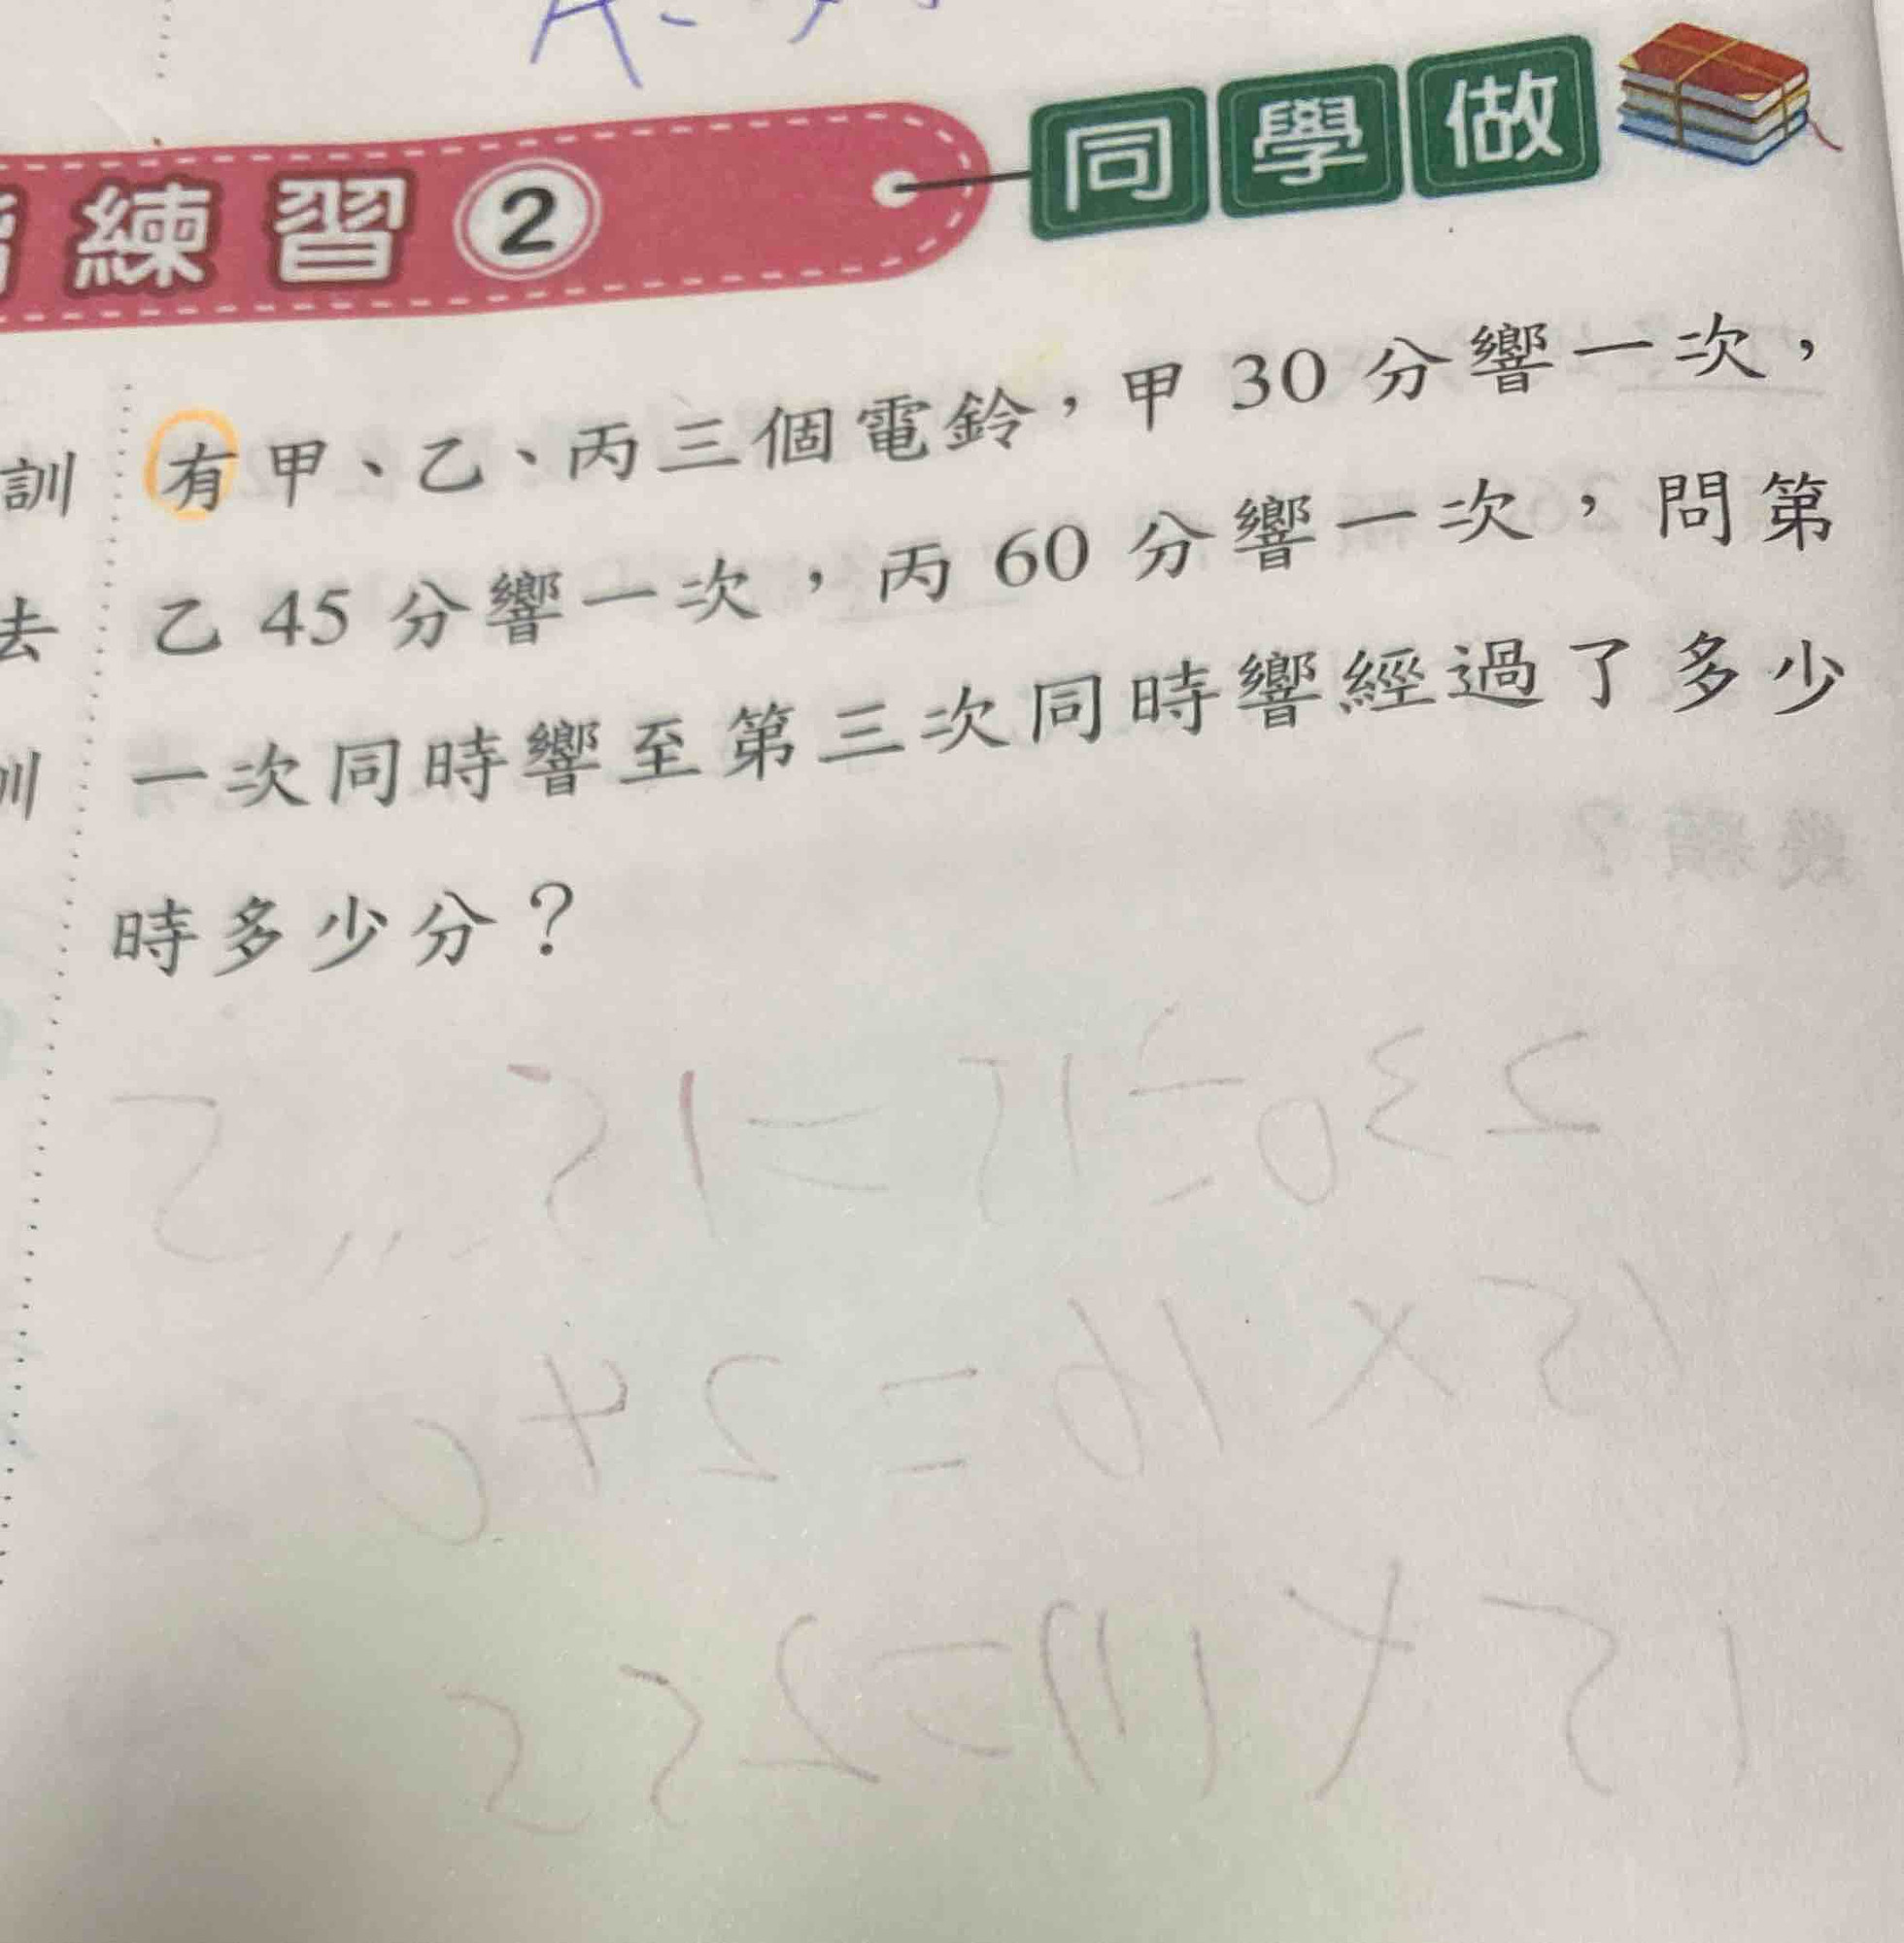 練習② 同學做
訓
去
訓
有甲、乙、丙三個電鈴，甲 30 分響一次，
乙 45 分響一次，丙 60 分響一次，問第
一次同時響至第三次同時響經過了多少
時多少分？